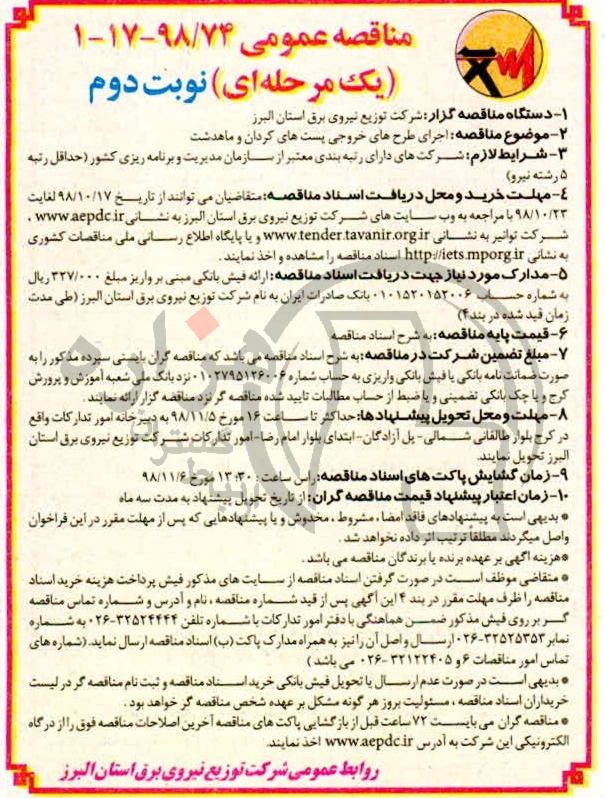 مناقصه عمومی ۹۸/۷۴-۱۷-۱
(یک مرحله ای) نوبت دوم
۱- دستگاه مناقصه گزار: شرکت توزیع نیروی برق استان البرز
۲- موضوع مناقصه: اجرای طرح های خروجی پست های کردان و ماهدشت
۳- شرایط لازم: شرکت های دارای رتبه بندی معتبر از سازمان مدیریت و برنامه ریزی کشور (حداقل رتبه
۵ رشته نیرو)
۴- مهلت خرید و محل دریافت اسناد مناقصه: متقاضیان می توانند از تاریخ ۹۸/۱۰/۱۷ لغایت
۹۸/۱۰/۲۳ با مراجعه به وب سایت های شرکت توزیع نیروی برق استان البرز به نشانی www.aepdc.ir ،
شرکت توانیر به نشانی www.tender.tavanir.org.ir و یا پایگاه اطلاع رسانی ملی مناقصات کشوری
به نشانی http://iets.mporg.ir اسناد مناقصه را مشاهده و اخذ نمایند .
۵- مدارک مورد نیاز جهت دریافت اسناد مناقصه: ارائه فیش بانکی مبنی بر واریز مبلغ ۳۲۷/۰۰۰ ریال
به شماره حساب ۰۱۰۱۵۲۰۱۵۲۰۰۶ بانک صادرات ایران به نام شرکت توزیع نیروی برق استان البرز (طی مدت
زمان قید شده در بند ۴)
۶- قیمت پایه مناقصه: به شرح اسناد مناقصه
۷- مبلغ تضمین شرکت در مناقصه: به شرح اسناد مناقصه می باشد که مناقصه گران بایستی سپرده مذکور را به
صورت ضمانت نامه بانکی یا فیش بانکی واریزی به حساب شماره ۰۱۰۲۷۹۵۱۲۶۰۰۶ نزد بانک ملی شعبه آموزش و پرورش
کرج و یا چک بانکی تضمینی و یا ضبط از حساب مطالبات تایید شده مناقصه گر نزد مناقصه گزار ارائه نمایند.
۸- مهلت و محل تحویل پیشنهادها: حداکثر تا ساعت ۱۶ مورخ ۹۸/۱۱/۵ به دبیرخانه امور تدارکات واقع
در کرج بلوار طالقانی شمالی- پل آزادگان- ابتدای بلوار امام رضا- امور تدارکات شرکت توزیع نیروی برق استان
البرز تحویل نمایند.
۹- زمان گشایش پاکت های اسناد مناقصه: راس ساعت : ۱۳:۳۰ مورخ ۹۸/۱۱/۶
۱۰- زمان اعتبار پیشنهاد قیمت مناقصه گران: از تاریخ تحویل پیشنهاد به مدت سه ماه
* بدیهی است به پیشنهادهای فاقد امضا ، مشروط ، مخدوش و یا پیشنهادهایی که پس از مهلت مقرر در این فراخوان
واصل میگردند مطلقاً ترتیب اثر داده نخواهد شد .
*هزینه اگهی بر عهده برنده یا برندگان مناقصه می باشد .
* متقاضی موظف است در صورت گرفتن اسناد مناقصه از سایت های مذکور فیش پرداخت هزینه خرید اسناد
مناقصه را ظرف مهلت مقرر در بند ۴ این آگهی پس از قید شماره مناقصه ، نام و آدرس و شماره تماس مناقصه
گر بر روی فیش مذکور ضمن هماهنگی با دفتر امور تدارکات با شماره تلفن ۳۲۵۲۴۴۴۴-۰۲۶ به شماره
نمابر ۳۲۵۲۵۳۵۳-۰۲۶ ارسال و اصل آن را نیز به همراه مدارک پاکت (ب) اسناد مناقصه ارسال نماید. (شماره های
تماس امور مناقصات ۶ و ۳۲۱۲۲۴۰۵-۰۲۶ می باشد )
* بدیهی است در صورت عدم ارسال یا تحویل فیش بانکی خرید اسناد مناقصه و ثبت نام مناقصه گر در لیست
خریداران اسناد مناقصه ، مسئولیت بروز هر گونه مشکل بر عهده شخص مناقصه گر خواهد بود .
* مناقصه گران می بایست ۷۲ ساعت قبل از بازگشایی پاکت های مناقصه آخرین اصلاحات مناقصه فوق را از درگاه
الکترونیکی این شرکت به آدرس www.aepdc.ir اخذ نمایند.
روابط عمومی شرکت توزیع نیروی برق استان البرز